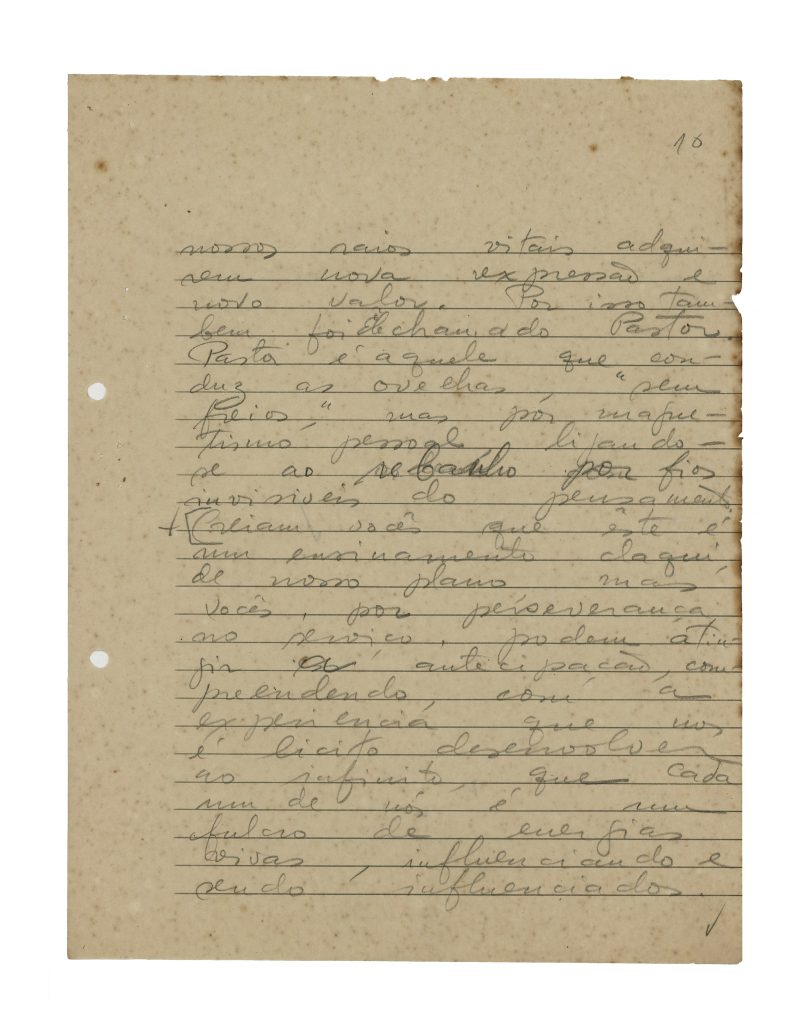 16
nossos raios vitais adqui-
rem nova expressão e
novo valor. Por isso tam-
bem foi Ele chamado Pastor.
Pastor é aquele que con-
duz as ovelhas, "sem
freios," mas por magne-
tismo pessoal, ligando-
se ao rebanho por fios
invisiveis do pensamento.
+ [Creiam vocês que êste é
um ensinamento daqui,
de nosso plano mas
vocês, por perseverança
no serviço, podem atin-
gir a antecipação, com-
preendendo, com a
experiencia que nos
é licito desenvolver
ao infinito, que cada
um de nós é um
fulcro de energias
vivas, influenciando e
sendo influenciados.